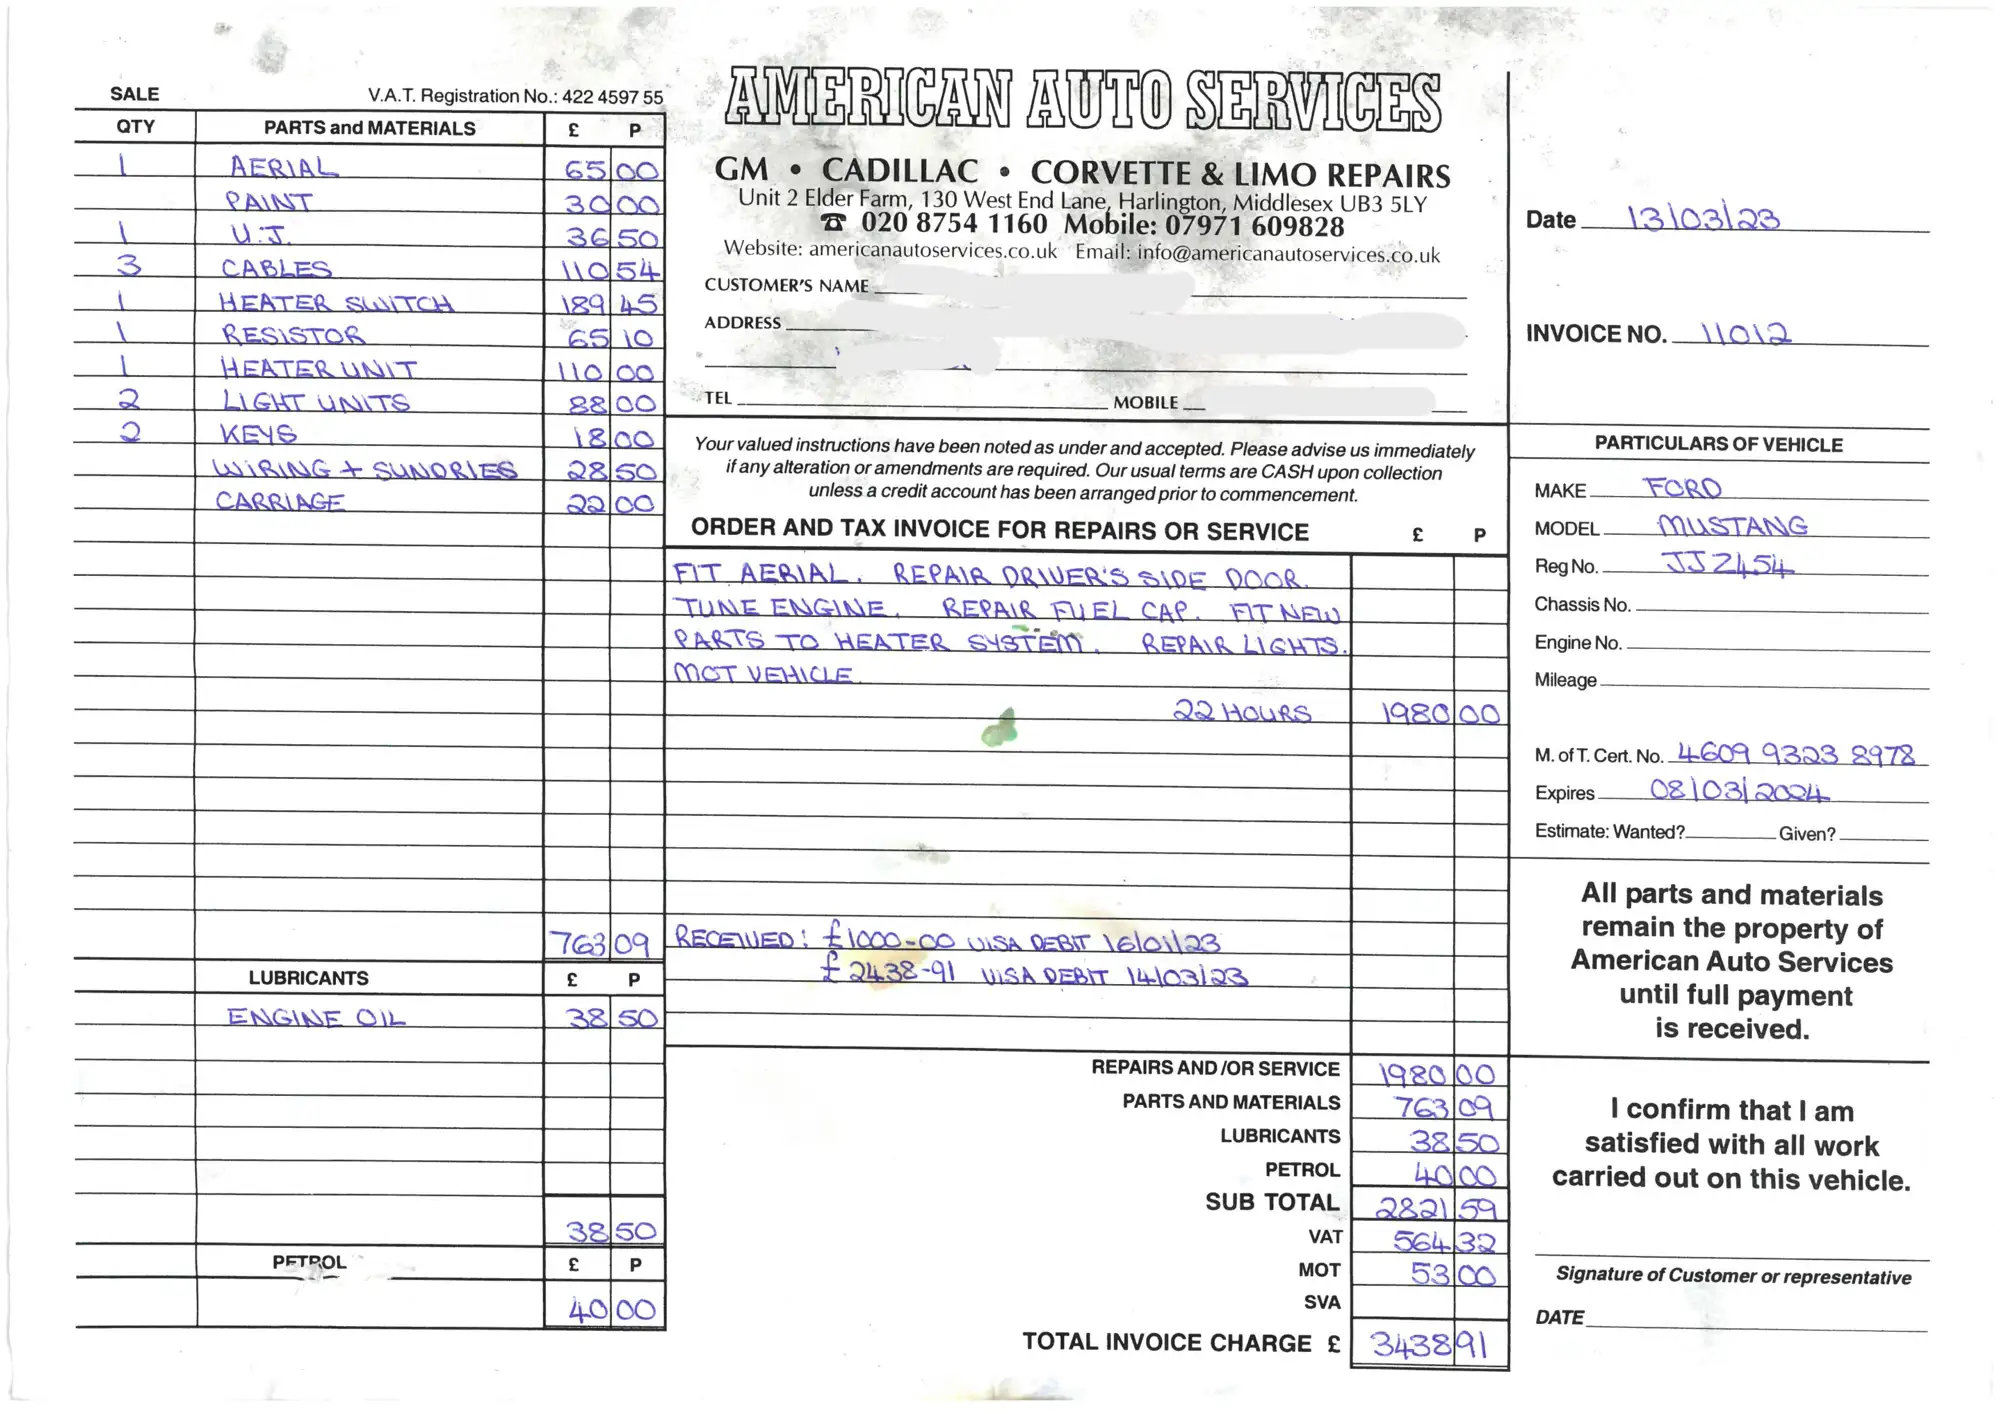 SALE V.A.T. Registration No.: 422 4597 55
QTY PARTS and MATERIALS £ P
1 AERIAL 65 00
PAINT 30 00
1 U.J. 36 50
3 CABLES 110 54
1 HEATER SWITCH 189 45
1 RESISTOR 65 10
1 HEATER UNIT 110 00
2 LIGHT UNITS 88 00
2 KEYS 18 00
WIRING + SUNDRIES 28 50
CARRIAGE 22 00
763 09
LUBRICANTS £ P
ENGINE OIL 38 50
38 50
PETROL £ P
40 00
AMERICAN AUTO SERVICES
GM • CADILLAC • CORVETTE & LIMO REPAIRS
Unit 2 Elder Farm, 130 West End Lane, Harlington, Middlesex UB3 5LY
☎ 020 8754 1160 Mobile: 07971 609828
Website: americanautoservices.co.uk Email: info@americanautoservices.co.uk
CUSTOMER'S NAME
ADDRESS
TEL MOBILE
Your valued instructions have been noted as under and accepted. Please advise us immediately
if any alteration or amendments are required. Our usual terms are CASH upon collection
unless a credit account has been arranged prior to commencement.
ORDER AND TAX INVOICE FOR REPAIRS OR SERVICE £ P
FIT AERIAL. REPAIR DRIVER'S SIDE DOOR.
TUNE ENGINE. REPAIR FUEL CAP. FIT NEW
PARTS TO HEATER SYSTEM. REPAIR LIGHTS.
MOT VEHICLE
22 HOURS 1980 00
RECEIVED: £1000-00 VISA DEBIT 16/01/23
£2438-91 VISA DEBIT 14/03/23
REPAIRS AND /OR SERVICE 1980 00
PARTS AND MATERIALS 763 09
LUBRICANTS 38 50
PETROL 40 00
SUB TOTAL 2821 59
VAT 564 32
MOT 53 00
SVA
TOTAL INVOICE CHARGE £ 3438 91
Date 13/03/23
INVOICE NO. 11012
PARTICULARS OF VEHICLE
MAKE FORD
MODEL MUSTANG
Reg No. JJ 2454
Chassis No.
Engine No.
Mileage
M. of T. Cert. No. 4609 9323 8978
Expires 08/03/2024
Estimate: Wanted? Given?
All parts and materials
remain the property of
American Auto Services
until full payment
is received.
I confirm that I am
satisfied with all work
carried out on this vehicle.
Signature of Customer or representative
DATE